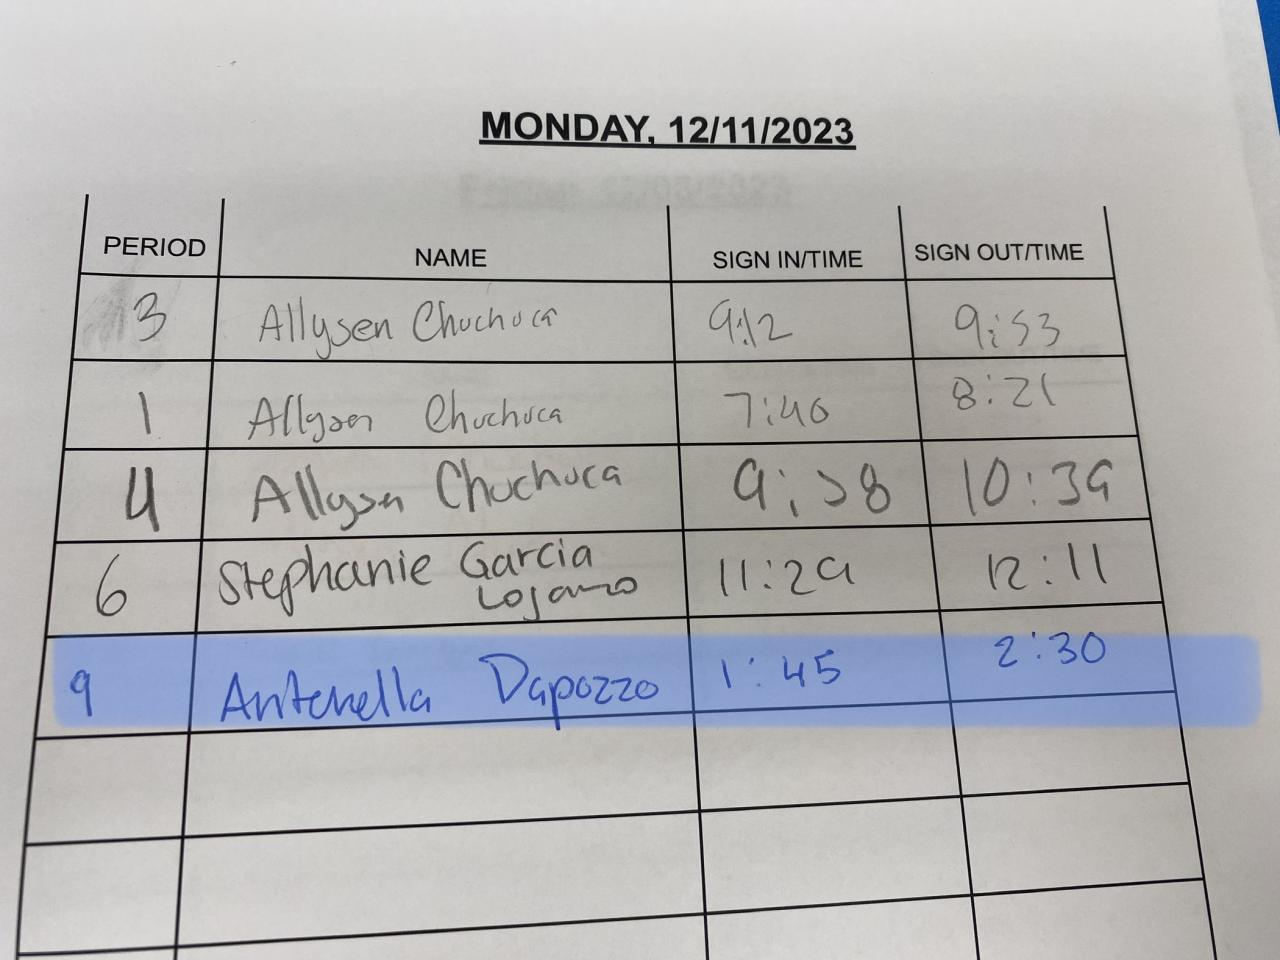 MONDAY, 12/11/2023
PERIOD NAME SIGN IN/TIME SIGN OUT/TIME
3 Allysen Chuchuca 9:12 9:53
1 Allyson Chuchuca 7:40 8:21
4 Allyson Chuchuca 9:58 10:39
6 Stephanie Garcia 11:29 12:11
Lojano
9 Antonella Dapozzo 1:45 2:30